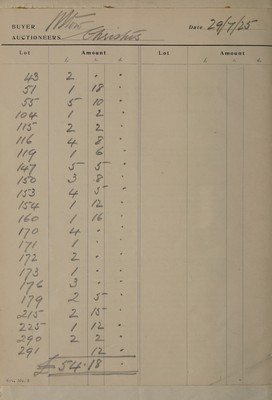 BUYER
Date 29/7/25
AUCTIONEERS Christies
Lot Amount Lot Amount
£ s d £ s d
43 2 " "
51 1 18 "
55 5 10 "
104 1 2 "
115 2 2 "
116 4 8 "
119 1 6 "
147 5 5 "
150 3 8 "
153 4 5 "
154 1 12 "
160 1 16 "
170 4 " "
171 1 " "
172 2 " "
173 1 " "
176 3 " "
179 2 5 "
215 2 15 "
225 1 12 "
290 2 2 "
291 12 "
£54 18 "